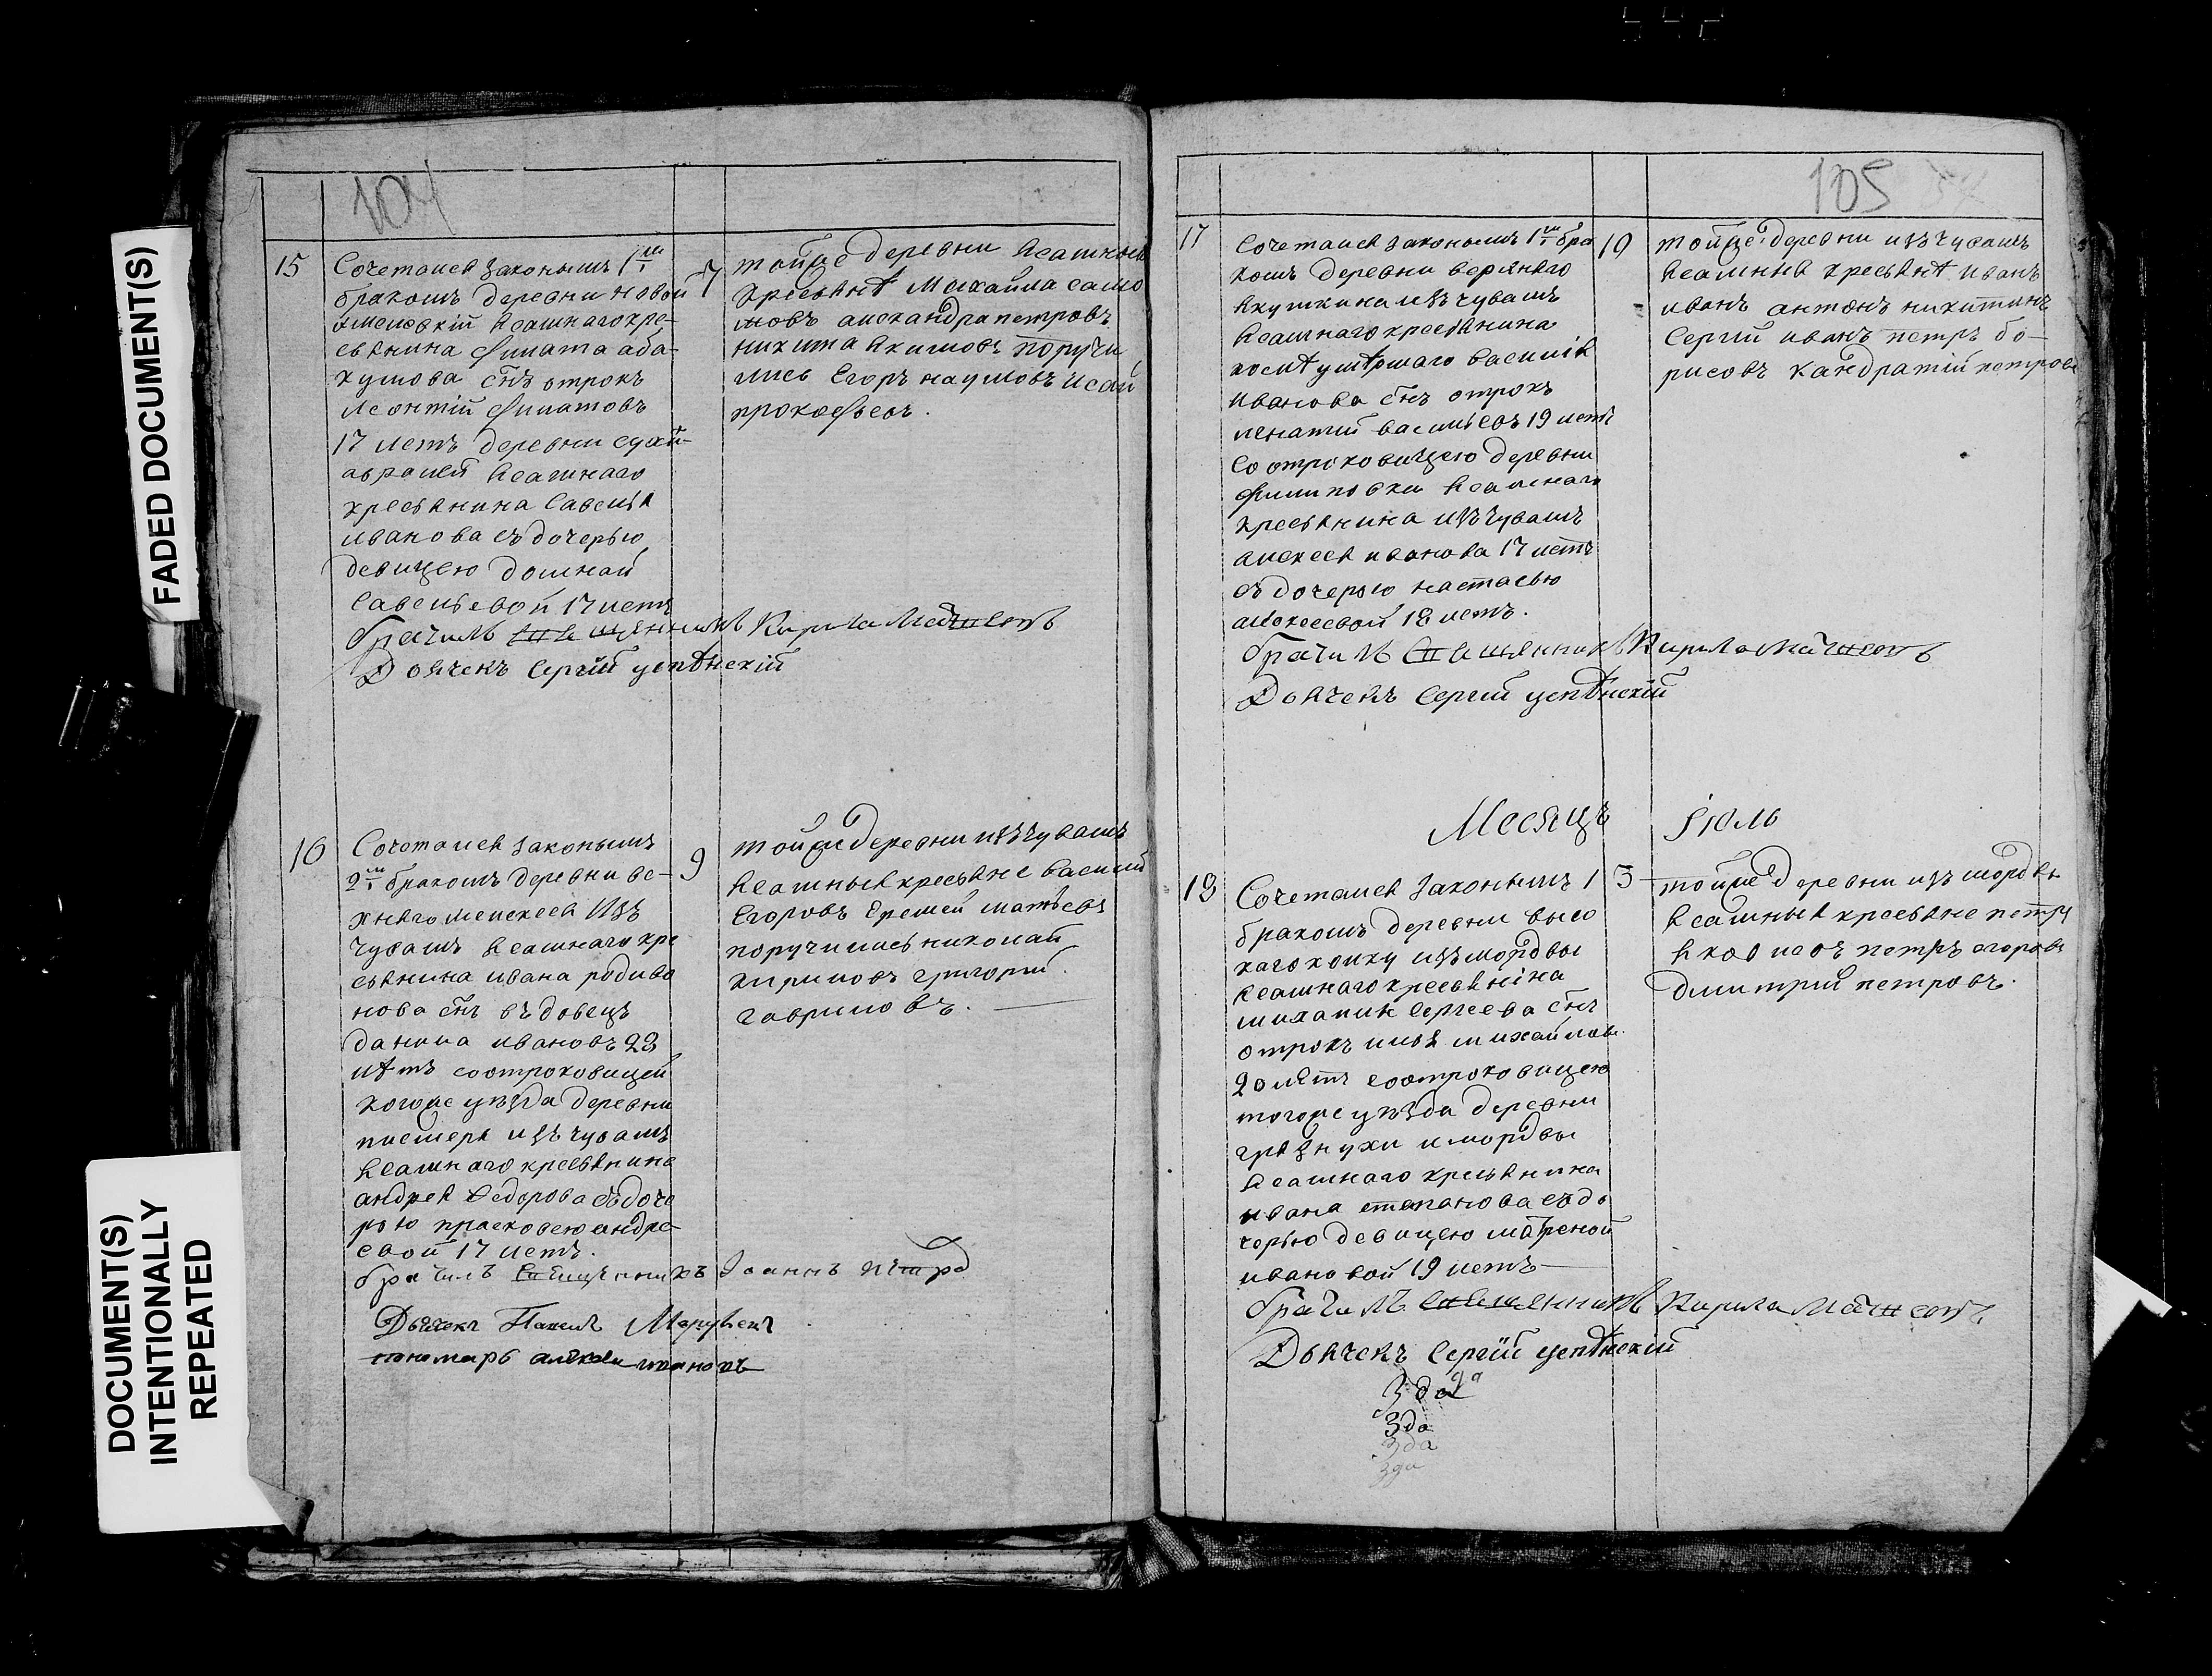 FADED DOCUMENT(S)
DOCUMENT(S)
INTENTIONALLY
REPEATED
104
15
Сочетался законымъ 1мъ
бракомъ деревни новой
ясашнаго кре-
сьянина филата аба-
кумова снъ отрокъ
леонтій филатовъ
17 летъ деревни
ясашнаго
кресьянина савелья
иванова съ дочерью
девицею домной
савельевой 17 летъ
брачилъ священникъ Кирила
Дьячекъ Сергiй успѣнскiй
7
тойже деревни ясашныя
кресьянѣ михайла само
иловъ александра петровъ
никита якимовъ поручи
лись Егоръ наумовъ исай
прокофьевъ.
16
Сочетался законымъ
2мъ бракомъ деревни ве-
хняго Изъ
чувашъ ясашнаго кре
сьянина ивана родиво
нова снъ въдовецъ
данила ивановъ 23
лѣтъ соотроковицей
тогоже уѣзда деревни
изъ чувашъ
ясашнаго кресьянина
андрея Федорова съ доче
рью прасковею андре
евой 17 летъ.
брачилъ Священникъ Iоаннъ
Дьячекъ Павелъ
пономарь алексѣй ивановъ
9
тойже деревни изъ чувашъ
ясашныя кресьяне василий
Егоровъ Еремей матвѣевъ
поручились николай
кириловъ григорий
гавриловъ.
105
17
Сочетался законымъ 1мъ бра
комъ деревни верхняго
якушкина изъ чувашъ
ясашнаго кресьянина
послѣ умѣршаго василія
иванова снъ отрокъ
игнатий васильевъ 19 летъ
со отроковицею деревни
филиповки ясашнаго
кресьянина изъ чувашъ
алексея иванова 17 летъ
съ дочерью настасью
алексеевой 18 летъ.
брачилъ Священникъ Кирила
Дьячекъ Сергiй успѣнскiй
10
тойже деревни изъ чувашъ
ясашныя кресьянѣ иванъ
иванъ антонъ никитинъ
Сергiй иванъ петръ бо-
рисовъ кандратiй петровъ
Месяцъ Iюль
18
Сочетался законымъ 1
бракомъ деревни высо
каго колку изъ мордвы
ясашнаго кресьянiна
михаила сергеева снъ
отрокъ илья михайловъ
20 лѣтъ соотроковицею
тогоже уѣзда деревни
грязнухи и мордвы
ясашнаго кресьянина
ивана степанова съ до
черью девицею матреной
ивановой 19 летъ
брачилъ священникъ Кирила
Дьячекъ Сергiй успѣнскiй
3 да
3 да
3 да
3 да
5
тойже деревни изъ мордвы
ясашныя кресьяне петръ
яковлевъ петръ егоровъ
дмитрий петровъ.